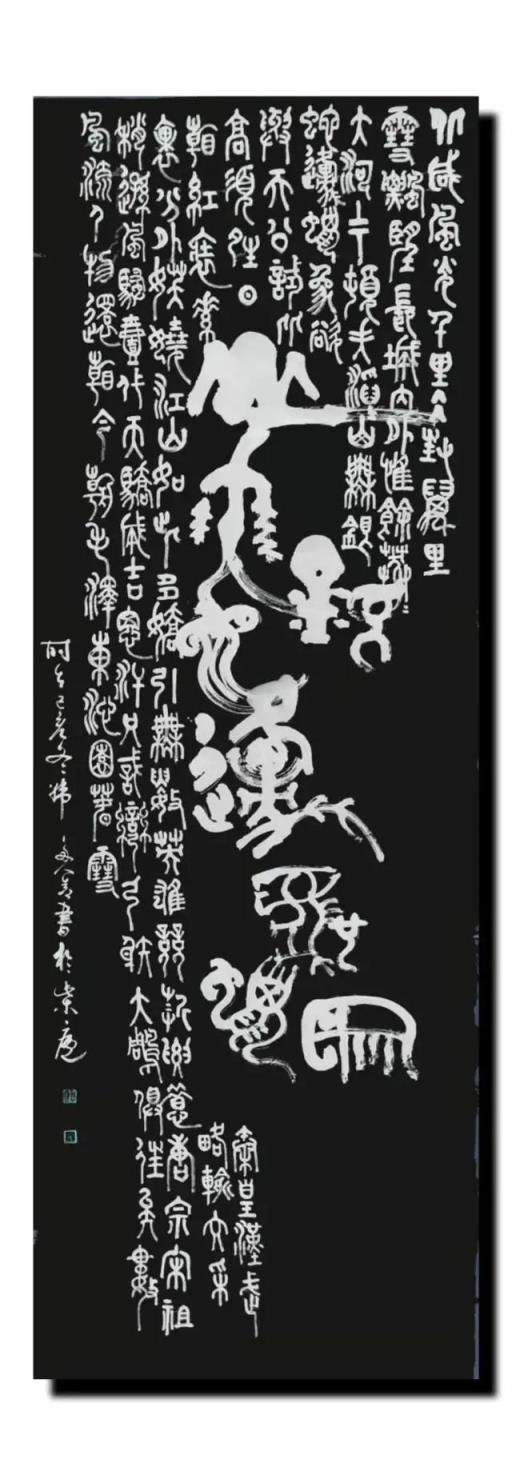 北國風光千里冰封萬里
雪飄望長城內外惟餘莽莽
大河上下頓失滔滔山舞銀
蛇原馳蠟象欲
與天公試比
高須晴日
看紅裝素
裹分外妖嬈江山如此多嬌引無數英雄競折腰惜
秦皇漢武
略輸文采
唐宗宋祖
稍遜風騷一代天驕成吉思汗只識彎弓射大雕俱往矣數
風流人物還看今朝毛澤東沁園春雪
山舞銀蛇
原馳蠟象
時在己亥冬之 書於紫